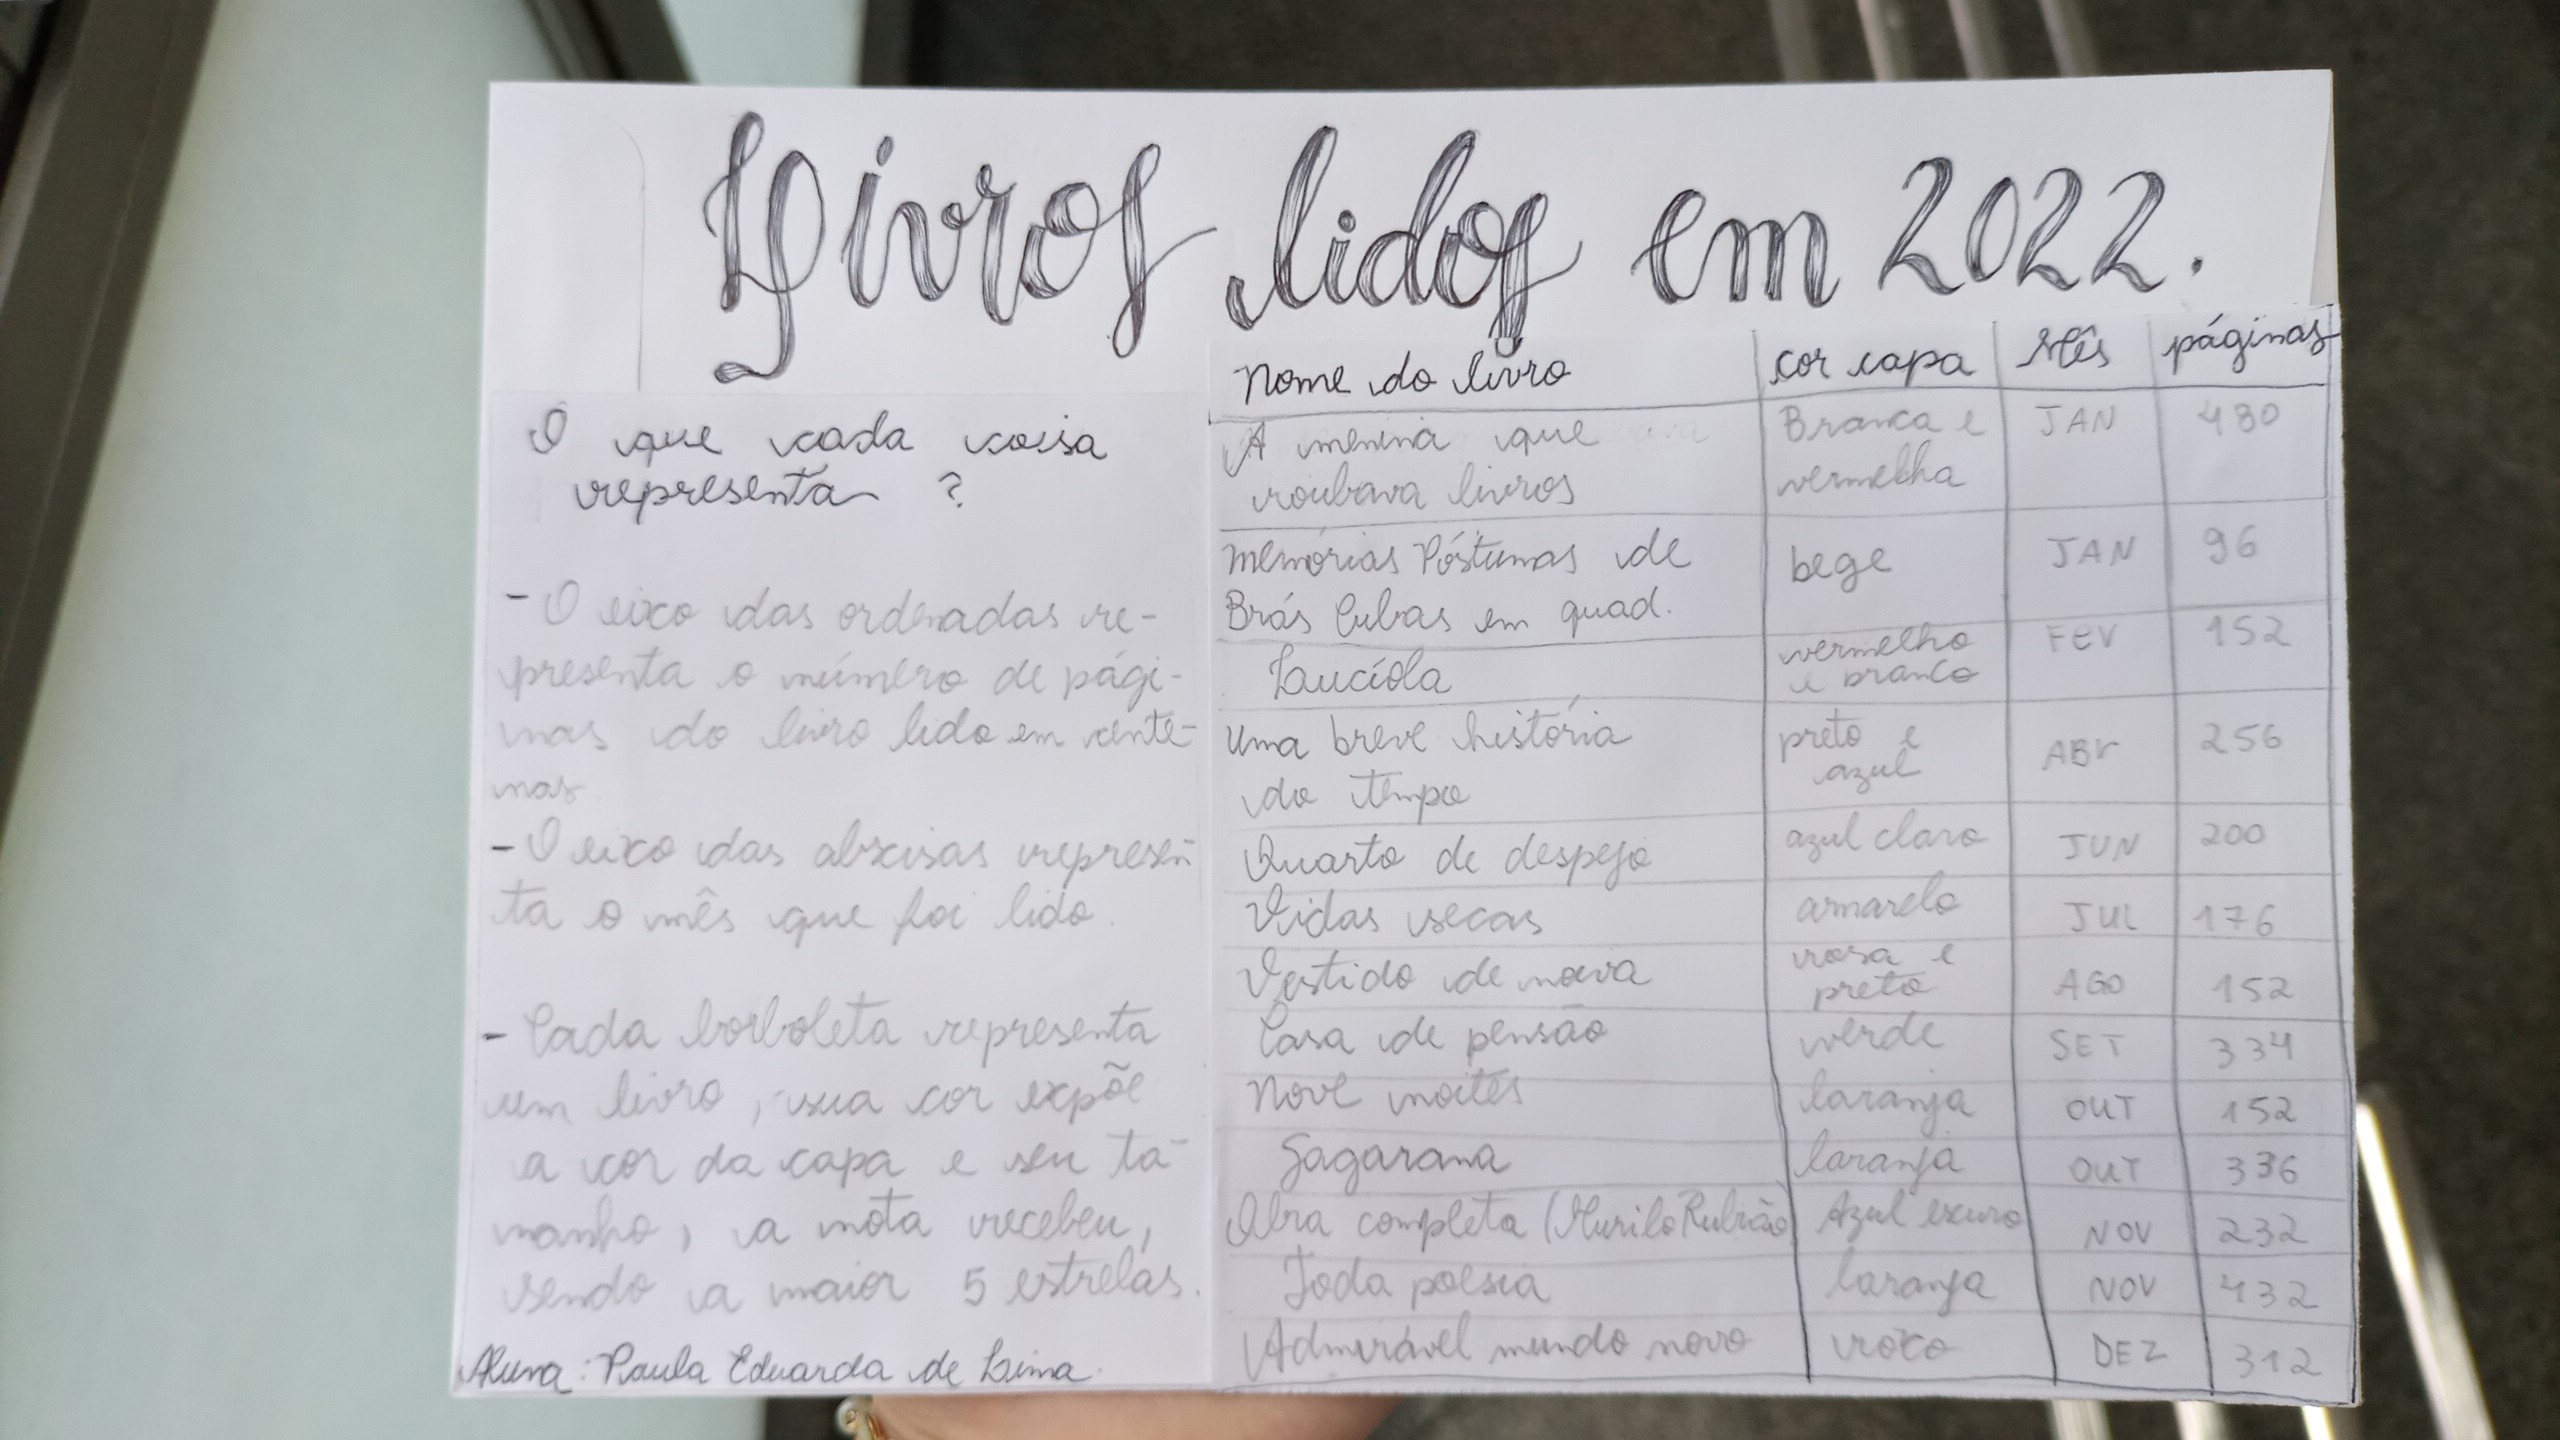 Livros lidos em 2022.
O que cada coisa
representa ?
- O eixo das ordenadas re-
presenta o número de pági-
nas do livro lido em cente-
nas.
- O eixo das abscisas represen-
ta o mês que foi lido.
- Cada borboleta representa
um livro, sua cor expõe
a cor da capa e seu ta-
manho, a nota recebeu,
sendo a maior 5 estrelas.
Aluna: Paula Eduarda de Lima.
Nome do livro cor capa Mês páginas
A menina que Branca e JAN 480
roubava livros vermelha
Memórias Póstumas de bege JAN 96
Brás Cubas em quad.
Lucíola vermelho FEV 152
e branco
Uma breve história preto e ABr 256
do tempo azul
Quarto de despejo azul claro JUN 200
Vidas secas amarelo JUL 176
Vestido de noiva rosa e AGO 152
preto
Casa de pensão verde SET 334
Nove noites laranja OUT 152
Sagarana laranja OUT 336
Obra completa (Murilo Rubião) Azul escuro NOV 232
Toda poesia laranja NOV 432
Admirável mundo novo roxo DEZ 312